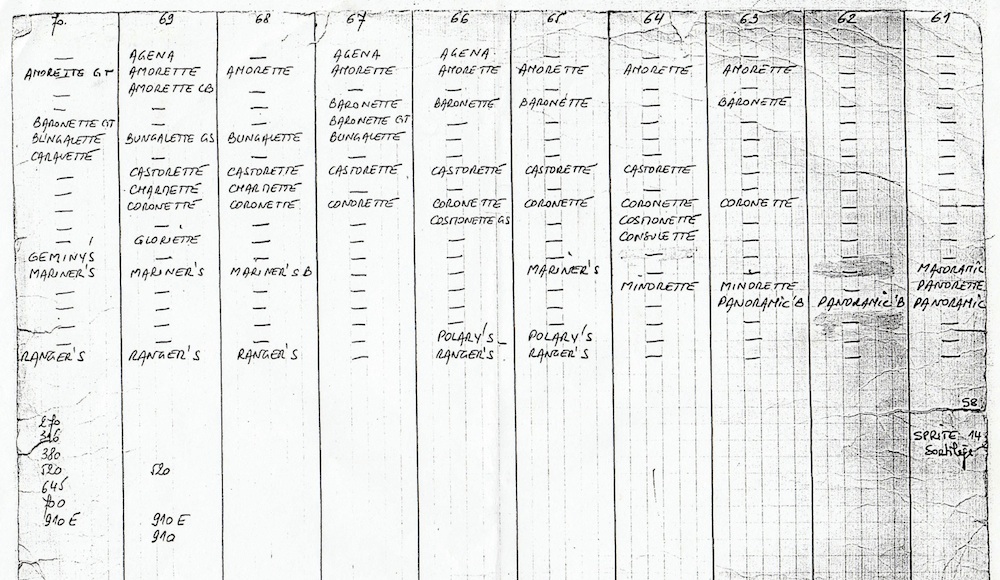 70. 69 68 67 66 65 64 63 62 61
AGENA AGENA AGENA
AMORETTE GT AMORETTE AMORETTE AMORETTE AMORETTE AMORETTE AMORETTE AMORETTE
AMORETTE CB
BARONETTE BARONETTE BARONETTE BARONETTE
BARONETTE GT BARONETTE GT
BUNGALETTE BUNGALETTE GS BUNGALETTE BUNGALETTE
CARAVETTE
CASTORETTE CASTORETTE CASTORETTE CASTORETTE CASTORETTE CASTORETTE
CHARMETTE CHARMETTE
CORONETTE CORONETTE CORONETTE CORONETTE CORONETTE CORONETTE
COSMONETTE GS COSMONETTE
GLORIETTE CONSULETTE
GEMINY'S
MARINER'S MARINER'S MARINER'S B MARINER'S MAJORAMIC
MINORETTE MINORETTE PANORETTE
PANORAMIC'B PANORAMIC'B PANORAMIC
POLARY'S POLARY'S
RANGER'S RANGER'S RANGER'S RANGER'S RANGER'S
58
270
316 SPRITE 14
380 Sortilège
520 520
645
700
910 E 910 E
910